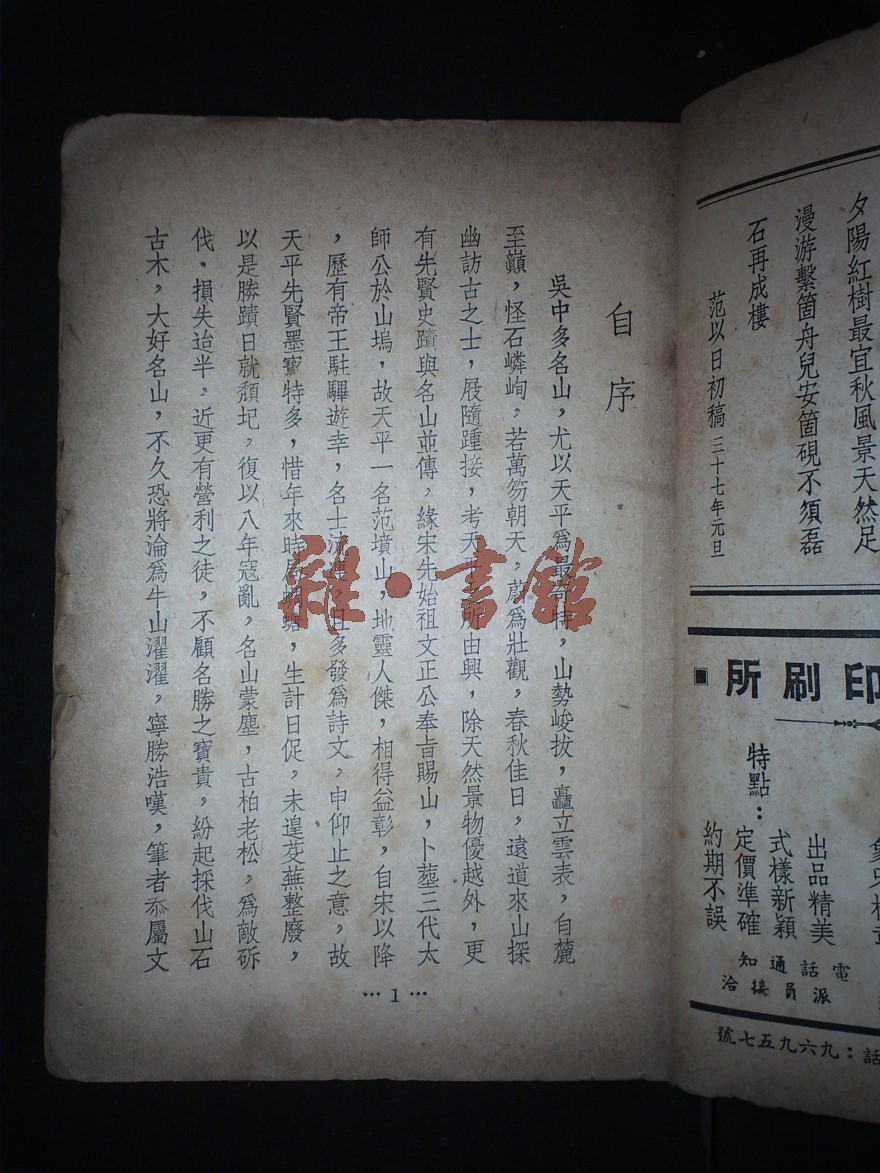 夕陽紅樹最宜秋風景天然足
漫游繫箇舟兒安箇硯不須磊
石再成樓
范以日初稿 三十七年元旦
印刷所
特點：
出品精美
式樣新穎
定價準確
約期不誤
電話通知
派員接洽
話：九六九五七號
自序
吳中多名山，尤以天平爲最奇特，山勢峻拔，矗立雲表，自麓
至巔，怪石嶙峋，若萬笏朝天，蔚爲壯觀，春秋佳日，遠道來山探
幽訪古之士，屐隨踵接，考天平所由興，除天然景物優越外，更
有先賢史蹟與名山並傳，緣宋先始祖文正公奉旨賜山，卜塟三代太
師公於山塢，故天平一名范墳山，地靈人傑，相得益彰，自宋以降
，歷有帝王駐驆遊幸，名士流連，且多發爲詩文，申仰止之意，故
天平先賢墨寶特多，惜年來時局蜩螗，生計日促，未遑芟蕪整廢，
以是勝蹟日就頹圮，復以八年寇亂，名山蒙塵，古柏老松，爲敵斫
伐，損失迨半，近更有營利之徒，不顧名勝之寶貴，紛起採伐山石
古木，大好名山，不久恐將淪爲牛山濯濯，寧勝浩嘆，筆者忝屬文
…1…
雜·書館